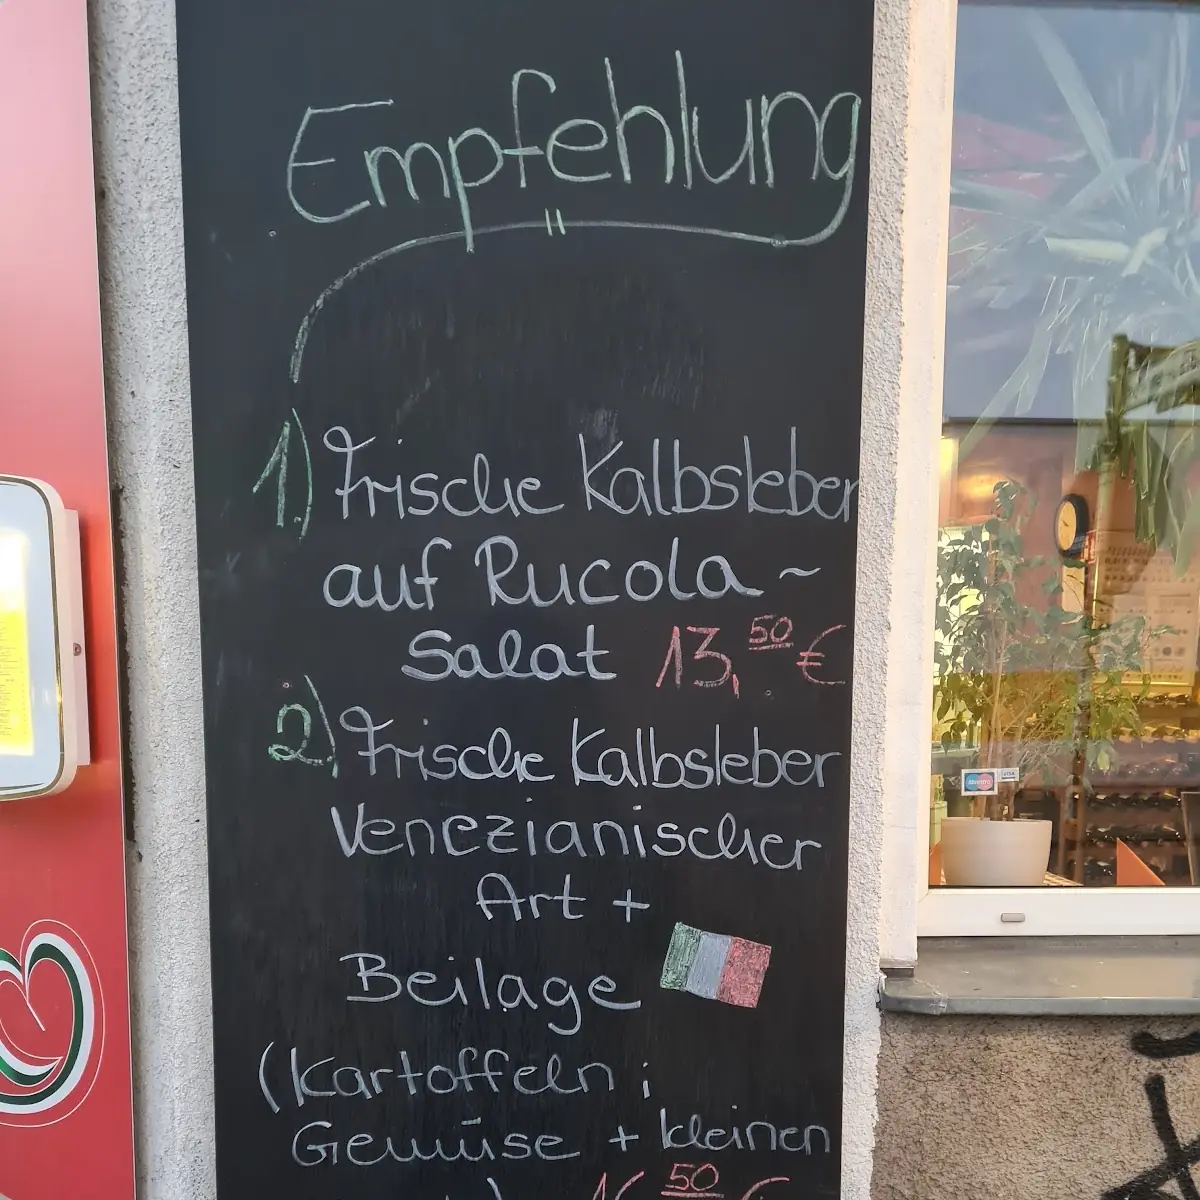 Empfehlung
1) Frische Kalbsleber
auf Rucola~
Salat 13,50 €
2) Frische Kalbsleber
Venezianischer
Art +
Beilage
(Kartoffeln ;
Gemüse + kleinen